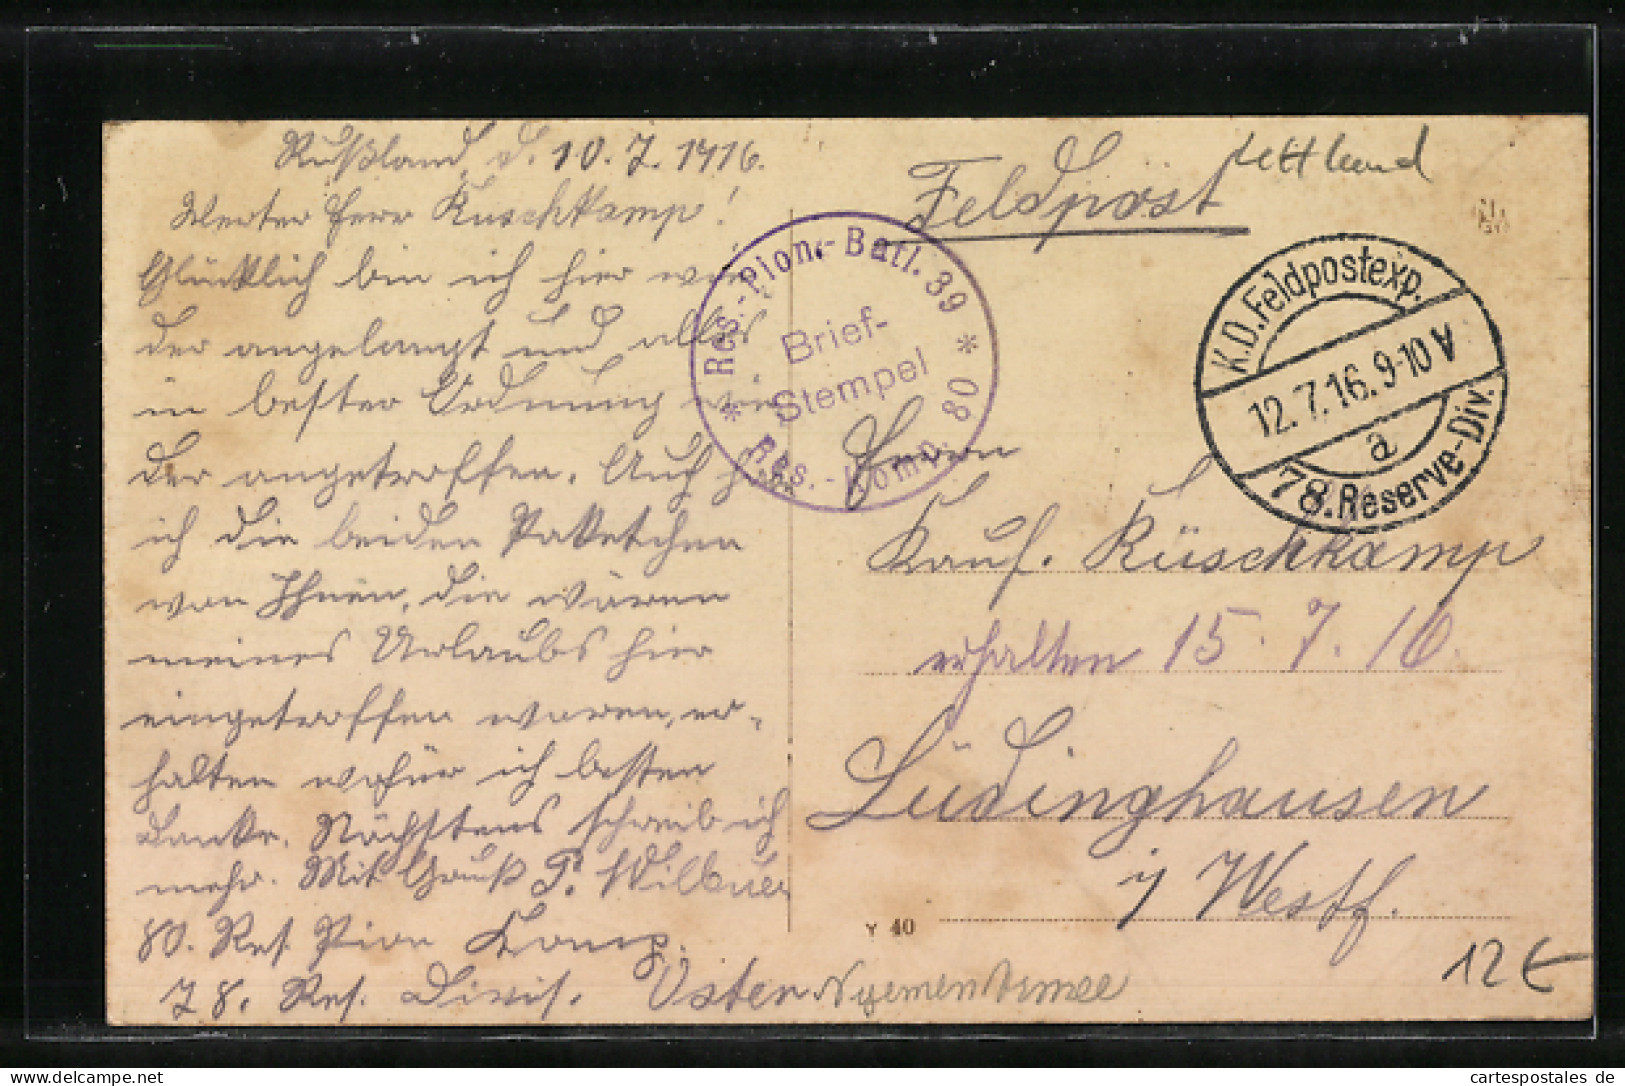 Rußland, d. 10.7.1916.
Werter Herr Kuschkamp!
Glücklich bin ich hier wie
der angelangt und alles
in bester Ordnung wie
der angetroffen. Auch
ich die beiden Paketchen
von Ihnen, die wären
meines Urlaubs hier
eingetroffen waren, er-
halten wofür ich besten
Danke. Nächstens schreib ich
mehr. Mit Gruß
80. Res. Pion Komp.
78. Res. Divis. Osten Armee
Feldpost Lettland
Res.-Pion.-Batl. 39
Brief-
Stempel
* Res.-Komp. 80 *
K.D.Feldpostexp.
12.7.16.9-10 V
a
78.Reserve-Div.
Herrn
Kauf. Küschkamp
erhalten 15.7.16.
Lüdinghausen
i/ Westf.
Y 40
12 €
delcampe.net
cartespostales de